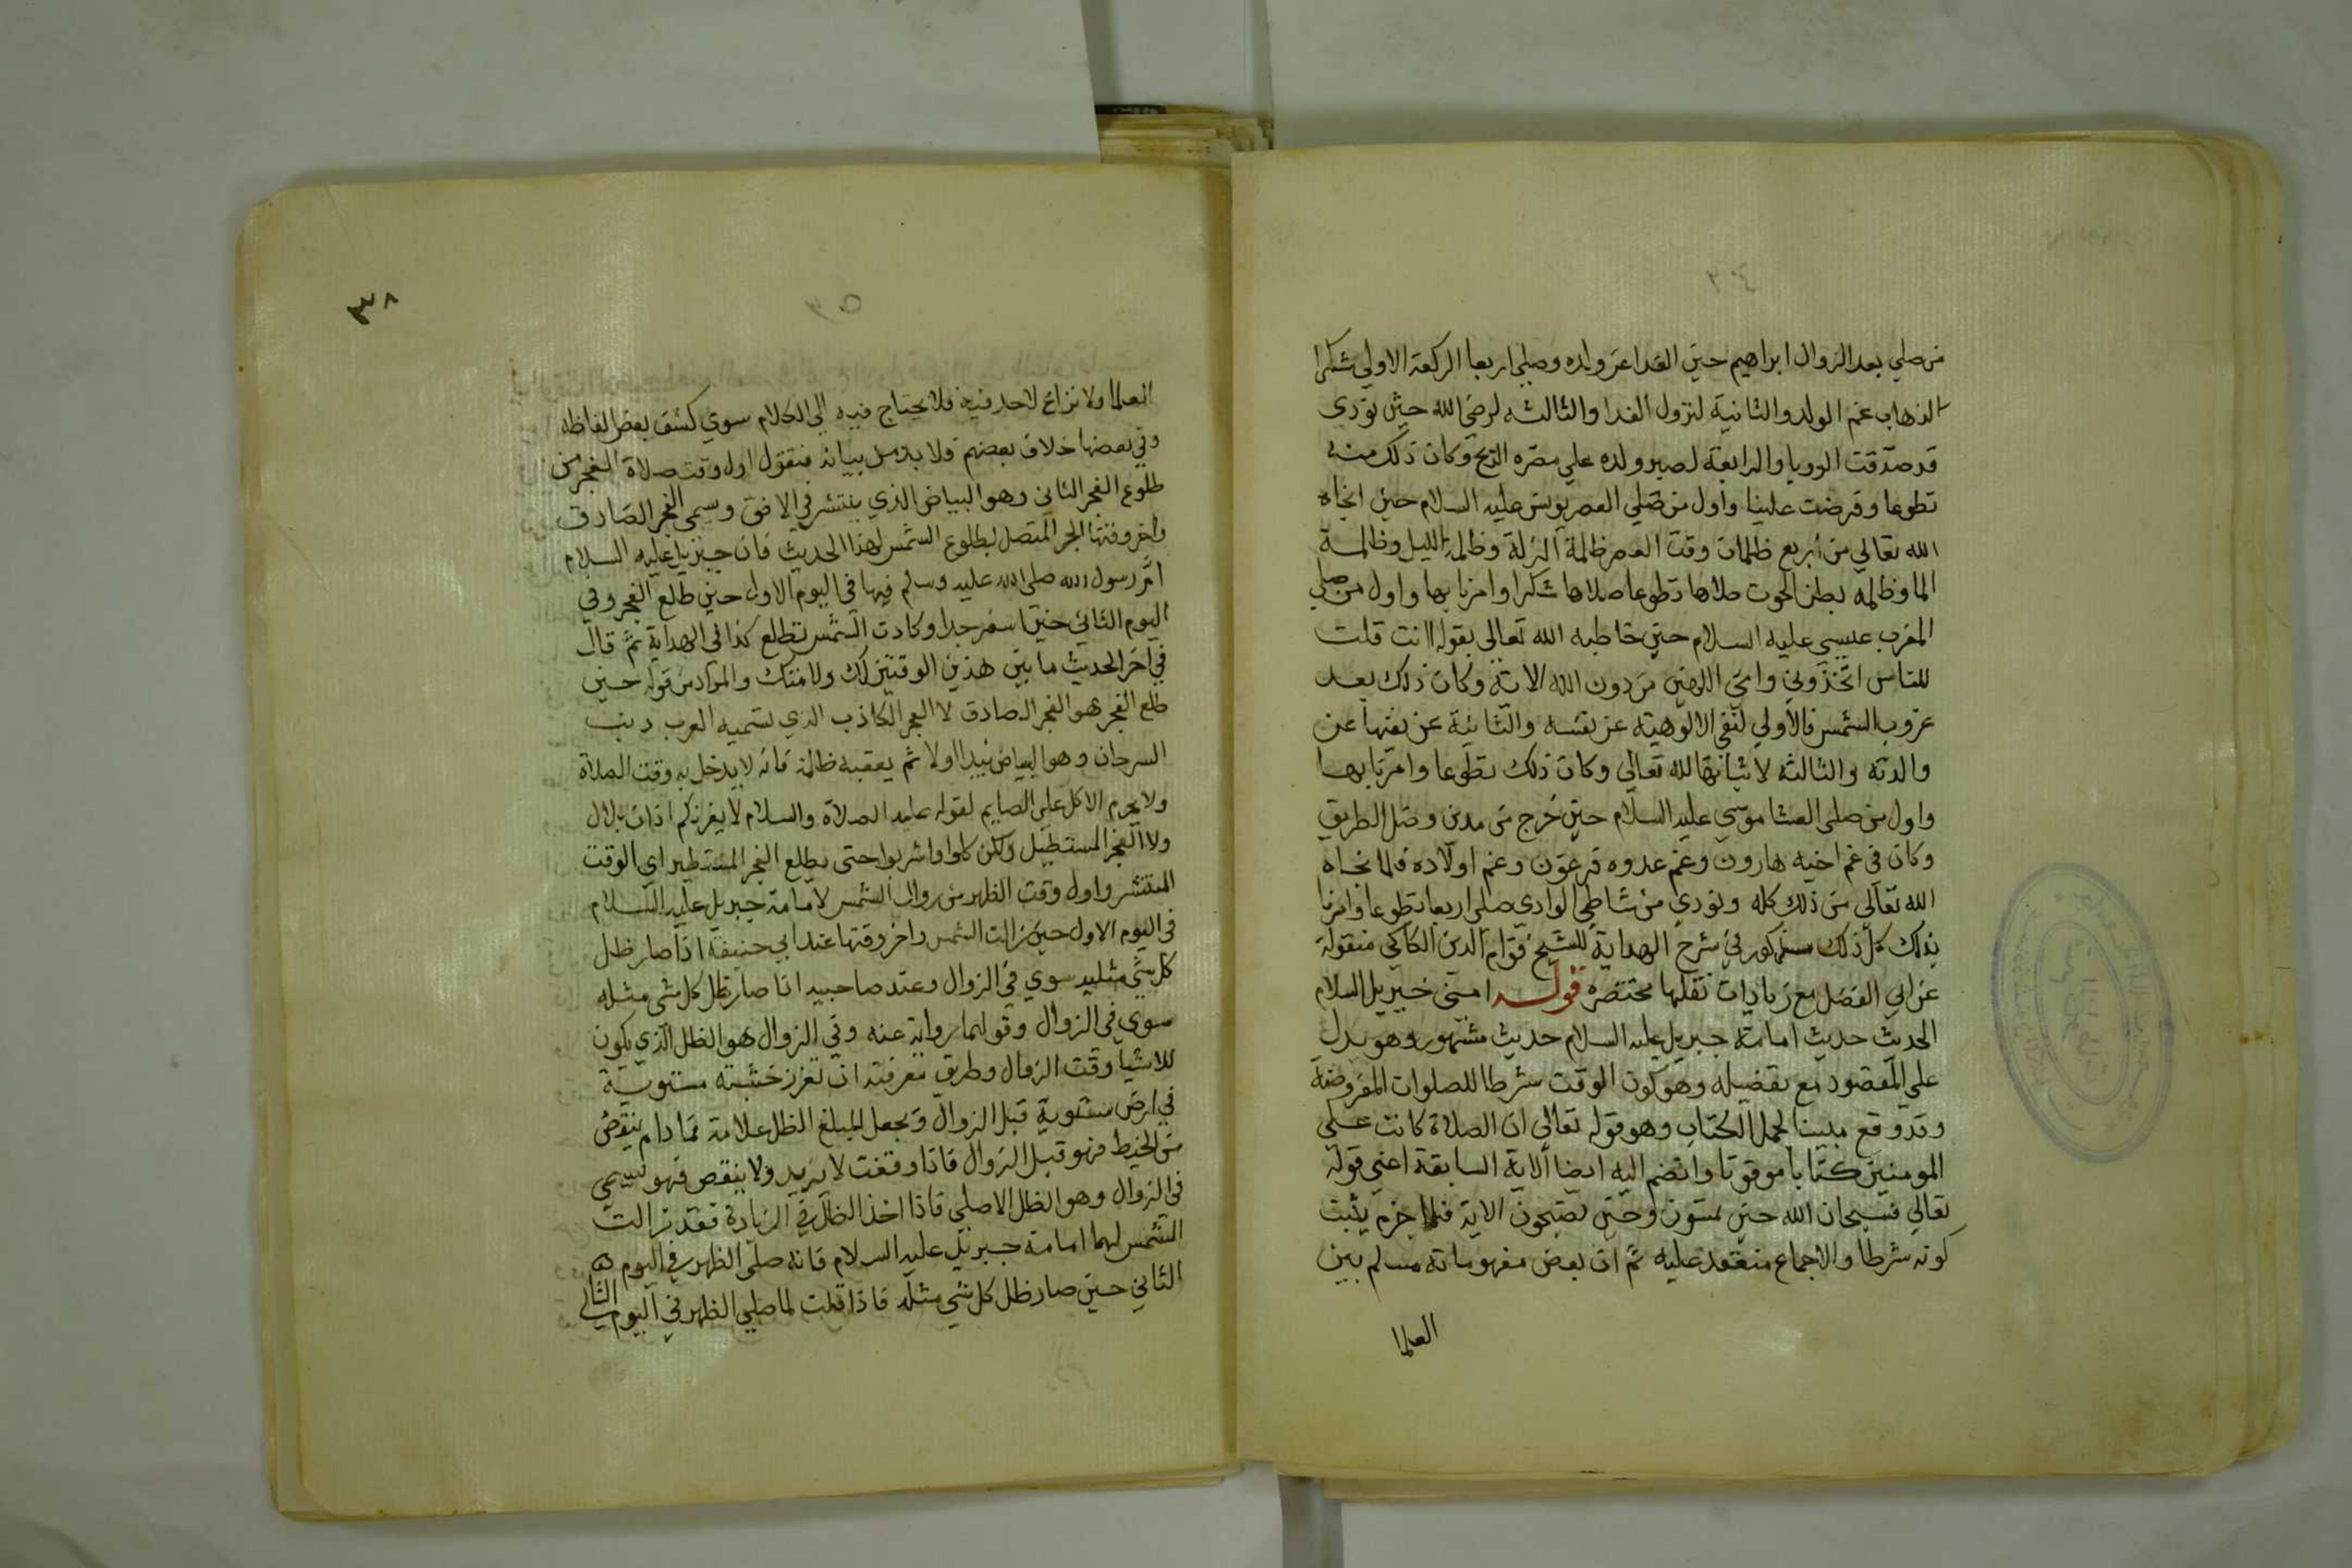 من صلي بعد الزوال ابراهيم حين الفدا عن ولده وصلي اربعا الركعة الاولي شكرا
لذهاب غم الولد والثانية لنزول الفدا والثالثه لرضي الله حين نودي
قد صدقت الرويا والرابعة لصبر ولده علي مضره الذبح وكان ذلك منه
تطوعا وفرضت علينا واول من صلي العصر يونس عليه السلام حين انجاه
الله تعالي من اربع ظلمات وقت العصر ظلمة الزلة وظلمة الليل وظلمة
الما وظلمه بطن الحوت صلاها تطوعا صلاها شكرا وامرنا بها واول من صلي
المغرب عيسي عليه السلام حين خاطبه الله تعالي بقوله اانت قلت
للناس اتخذوني وامي الهين من دون الله الاية وكان ذلك بعد
غروب الشمس فالاولي لنفي الالوهية عن نفسه والثانية عن نفيها عن
والدته والثالثه لاثباتها لله تعالي وكان ذلك تطوعا وامرنا بها
واول من صلي العشا موسي عليه السلام حين خرج من مدين وضل الطريق
وكان في غم اخيه هارون وغم عدوه فرعون وغم اولاده فلما نجاه
الله تعالي من ذلك كله ونودي من شاطي الوادي صلي اربعا تطوعا وامرنا
بذلك كل ذلك مذكور في شرح الهداية للشيخ قوام الدين الكاكي منقولة
عن ابي الفضل مع زيادات نقلها مختصره قوله امني جبريل السلام
الحديث حديث امامة جبريل عليه السلام حديث مشهور وهو يدل
علي المقصود مع تفضيله وهو كون الوقت شرطا للصلوات المفروضة
وقد وقع مبينا لمجمل الكتاب وهو قوله تعالي ان الصلاة كانت علي
المومنين كتابا موقوتا وانضم اليه ايضا الاية السابقة اعني قوله
تعالي فسبحان الله حين تمسون وحين تصبحون الاية فلا جرم يثبت
كونه شرطا والاجماع منعقد عليه ثم ان بعض مفهوماته مسلم بين
العلما
٣٨
العلما ولا نزاع لاحد فيه فلا يحتاج فيه الي الكلام سوي كشف بعض الفاظه
وفي بعضها خلاف بعضهم ولا بد من بيانه فنقول اول وقت صلاة الفجر من
طلوع الفجر الثاني وهو البياض الذي ينتشر في الافق وسمي الفجر الصادق
واخر وقتها الجزء المتصل بطلوع الشمس لهذا الحديث فان جبريل عليه السلام
ام رسول الله صلي الله عليه وسلم فيها في اليوم الاول حين طلع الفجر وفي
اليوم الثاني حين اسفر جدا وكادت الشمس تطلع كذا في الهداية ثم قال
في اخر الحديث ما بين هذين الوقتين لك ولامتك والمراد من قوله حين
طلع الفجر هو الفجر الصادق لا الفجر الكاذب الذي تسميه العرب دنب
السرحان وهو البياض يبدا اولا ثم يعقبه ظلمة فانه لا يدخل به وقت الصلاة
ولا يحرم الاكل علي الصايم لقوله عليه الصلاة والسلام لا يغرنكم اذان بلال
ولا الفجر المستطيل ولكن كلوا واشربوا حتي يطلع الفجر المستطير اي الوقت
المنتشر واول وقت الظهر من زوال الشمس لامامة جبريل عليه السلام
في اليوم الاول حين زالت الشمس واخر وقتها عند ابي حنيفة اذا صار ظل
كل شي مثليه سوي في الزوال وعند صاحبيه اذا صار ظل كل شي مثله
سوي في الزوال وقولهما رواية عنه وفي الزوال هو الظل الذي يكون
للاشيا وقت الزوال وطريق معرفته ان تغرز خشبته مستوية
في ارض مستوية قبل الزوال وتجعل لمبلغ الظل علامة فما دام ينقص
من الخط فهو قبل الزوال فاذا وقفت لا يزيد ولا ينقص فهو يسمي
في الزوال وهو الظل الاصلي فاذا اخذ الظل في الزيادة فقد زالت
الشمس لهما امامة جبريل عليه السلام فانه صلي الظهر في اليوم
الثاني حين صار ظل كل شي مثله فاذا قلت لما صلي الظهر في اليوم الثاني